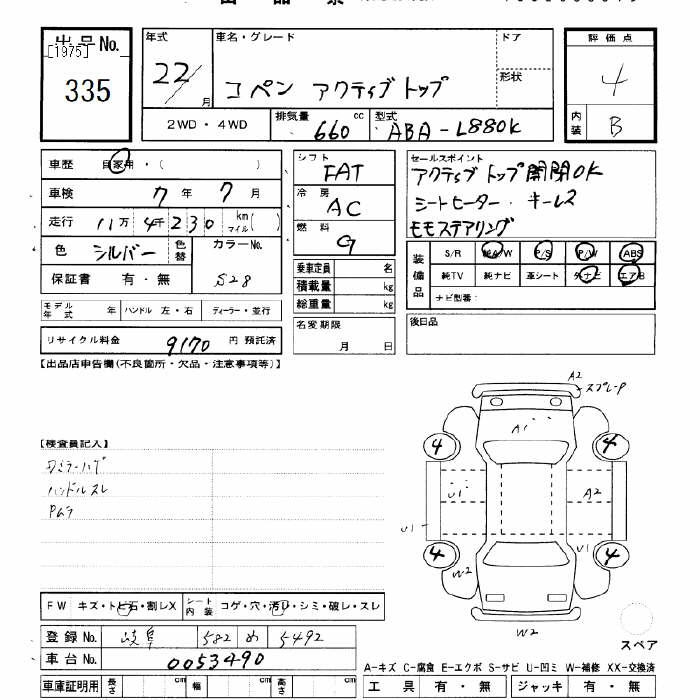 出品No. 年式 車名・グレード ドア 評価点
[1975]
335 22/月 コペン アクティブトップ 形状 4
2WD・4WD 排気量 660 cc 型式 ABA-L880K 内装 B
車歴 自家用・( ) シフト FAT セールスポイント
アクティブトップ開閉OK
車検 7年 7月 冷房 AC シートヒーター・キーレス
走行 11万 4千 230 km マイル( ) 燃料 G モモステアリング
色 シルバー 色替 カラーNo. S28
保証書 有・無
乗車定員 名
積載量 kg
総重量 kg
装備品 S/R 純A/W P/S P/W ABS
純TV 純ナビ 革シート 外ナビ エアB
ナビ型番:
モデル年式 年 ハンドル 左・右 ディーラー・並行
名変期限 月 日
後日品
リサイクル料金 9170 円 預託済
【出品店申告欄(不良箇所・欠品・注意事項等)】
A2
スプレーP
A1
4 4
【検査員記入】
ハンドルスレ
Pムラ
U1 A2
U1 U1
4 4
W2
W2
FW キズ・トビ石・割レX シート内装 コゲ・穴・汚レ・シミ・破レ・スレ
登録No. 岐阜 582 め 5492
スペア
車台No. 0053490
A-キズ C-腐食 E-エクボ S-サビ U-凹ミ W-補修 XX-交換済
車庫証明用 長さ cm 幅 cm 高さ cm 工具 有・無 ジャッキ 有・無